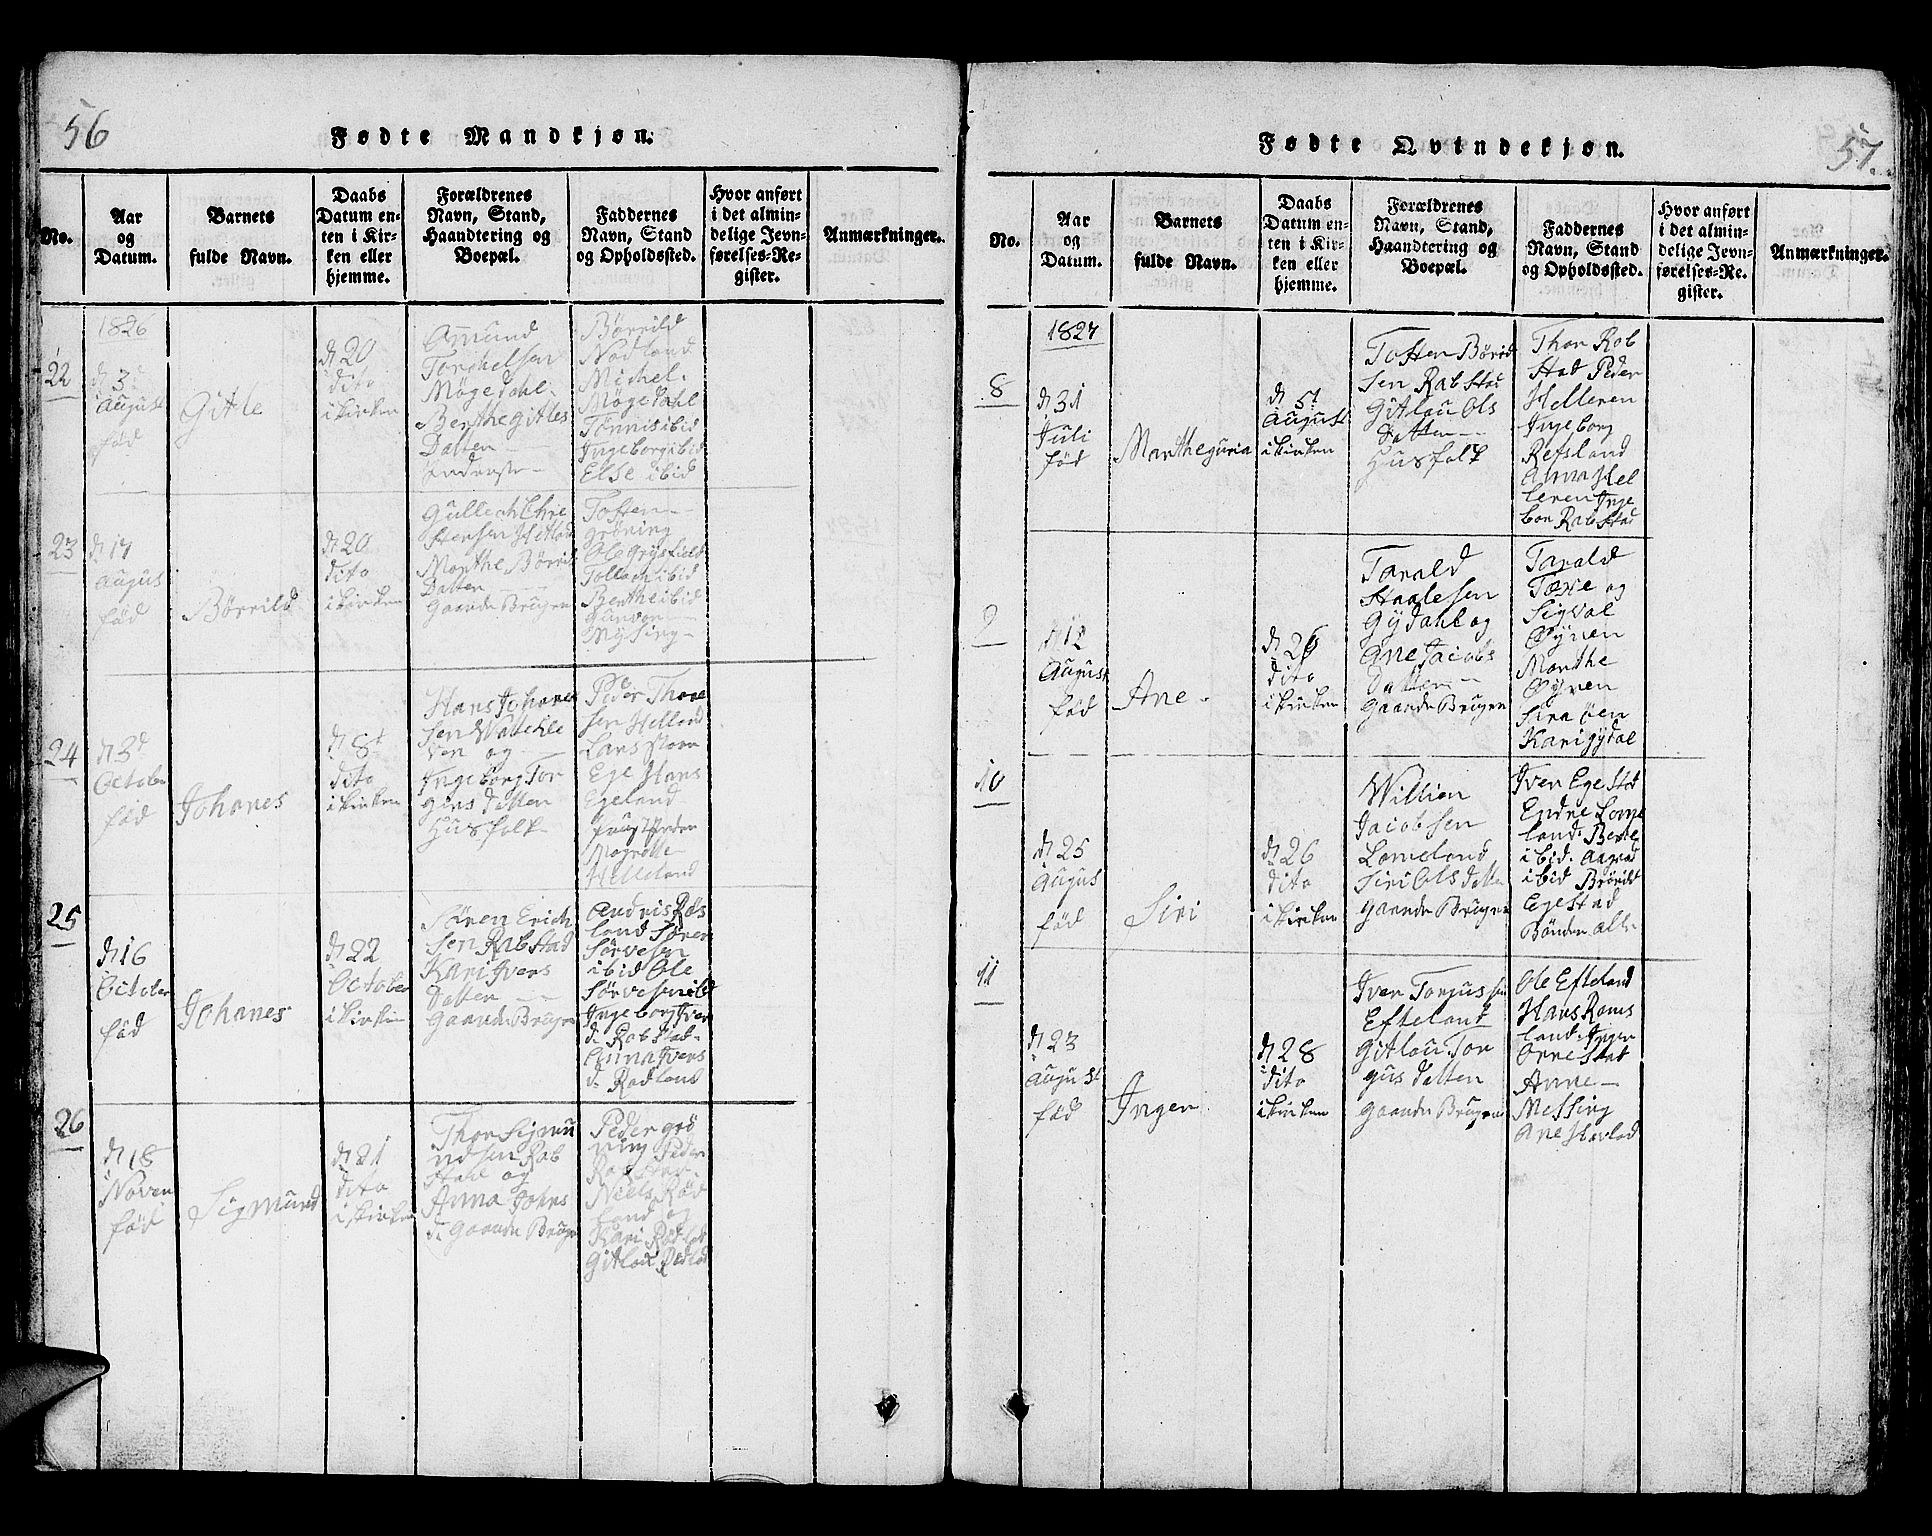 56
Fødte Mandkjøn.
No.
Aar
og
Datum.
Barnets
fulde Navn.
Daabs
Datum en-
ten i Kir-
ken eller
hjemme.
Forældrenes
Navn, Stand,
Haandtering og
Boepæl.
Faddernes
Navn, Stand
og Opholdssted.
Hvor anført
i det almin-
delige Jevn-
førelses-Re-
gister.
Anmærkninger.
22
1826
d 3d
August
fød
Gitle
d 20
dito
i kirken
Amund
Torchelsen
Møgedahl
Berthe Gitles
Datter
Børrild
Nodland
Michel
Møgedahl
Tønnis ibid
Ingeborg ibid
Else ibid
23
d 17
augus
fød
Børrild
d 20
dito
i kirken
Marthe Børril
Datter
Gaande Brugen
Toften
grøning
Tollach ibid
Berthe ibid
Gunvor
Mysing
24
d 3d
October
fød
Johanes
d 8t
dito
i kirken
Hans Johanes
Sen
ven og
Ingeborg Tor
gers Datter
Husfolk
Peder Thore
sen Helland
Lars store
Ege Hans
Egeland
Helleland
25
d 16
October
fød
Johanes
d 22
October
i kirken
Søren Erich
sen Rabstad
Kari Ivers
Datter
Gaande Brugen
Andris Røs
land Søren
Sørvesen
ibid Ole
Ingeborg Iver
d. Rabstad
Anna Ivers
d. Rødland
26
d 18
Noven
fød
Sigmund
d 21
dito
i kirken
Thor Sigmu
ndsen Rab
stad og
Anna Johns
d. Gaande Brugen
Peder grö
ning Peder
Niels Rød
land og
Kari Rødlad
Gitlou Rødlad
57.
Fødte Qvindekjøn.
No.
Aar
og
Datum.
Barnets
fulde Navn.
Daabs
Datum en-
ten i Kir-
ken eller
hjemme.
Forældrenes
Navn, Stand,
Haandtering og
Boepæl.
Faddernes
Navn, Stand
og Opholdssted.
Hvor anført
i det almin-
delige Jevn-
førelses-Re-
gister.
Anmærkninger.
8
1827
d 31
Juli
fød
Marthe guria
d 5t
August
i kirken
Toften Børild
sen Rabstad
Gitlou Ols
Datter
Husfolk
Thor Rob
stad Peder
Helleren
Ingeborg
Refsland
Anna Hel
leren Inge
bor Rabstad
9
d 12
August
fød
Ane
d 26
dito
i kirken
Tarald
Staalesen
Gydahl og
Ane Jacobs
Datter
Gaande Brugen
Tarald
Toxe og
Sigval
Øynen
Marthe
Øynen
Sira øen
Kari gydal
10
d 25
Augus
fød
Siri
d 26
dito
i kirken
Willien
Jacobsen
Lomeland
Siri Ols datter
Gaande Brugen
Iver Egestad
Endre Lome
land. Berte
ibid. Aagod
ibid Børild
Egestad
Bønder all.
11
d 23
August
fød
Inger
d 28
dito
i kirken
Iver Torgussen
Efteland
Gitlou Tor
gus datter
Gaande Brugen
Ole Efteland
Hans Rams
land. Inger
Ørrestad
Anne
Messing
Ane Hovlad